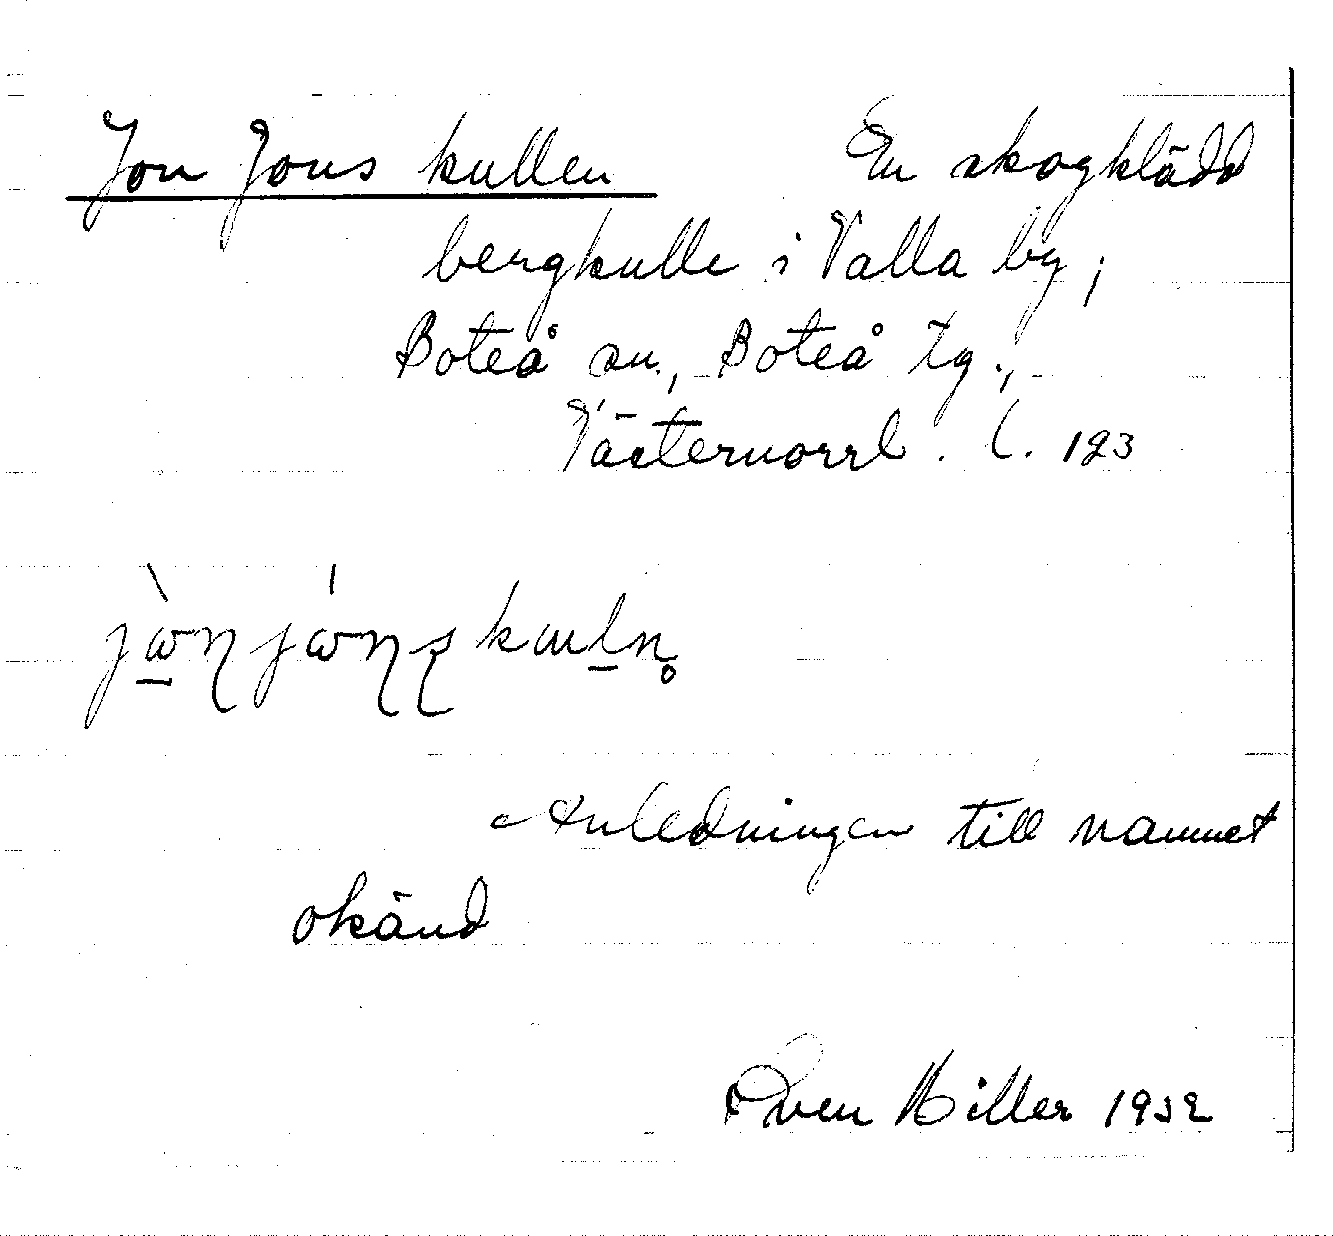 Jon Jons kullen En skogklädd
bergkulle i Valla by,
Boteå sn, Boteå tg.,
Västernorrl. l. 123
Anledningen till namnet
okänd
Sven Hiller 1932